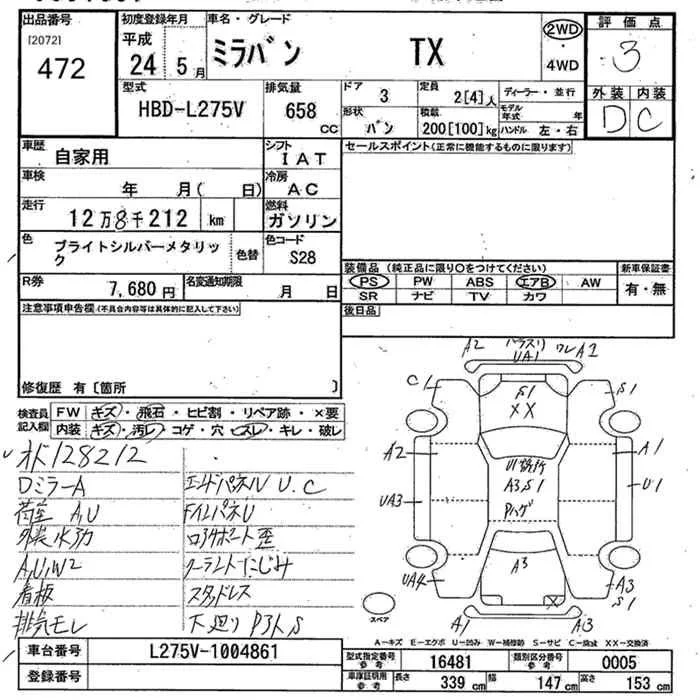 出品番号
[2072]
472
初度登録年月
平成
24 5月
車名・グレード
ミラバン TX
2WD
・
4WD
評価点
3
外装 内装
D C
型式
HBD-L275V
排気量
658 cc
ドア 3
形状 バン
定員 2[4]人
積載 200[100]kg
ディーラー・並行
モデル年式 年
ハンドル 左・右
車歴
自家用
シフト
IAT
セールスポイント(正常に機能するものに限ります)
車検
年 月( 日)
冷房
AC
走行
12万8千212 km
燃料
ガソリン
色
ブライトシルバーメタリック
色替
色コード
S28
装備品 (純正品に限り○をつけてください)
PS PW ABS エアB AW
SR ナビ TV カワ
新車保証書
有・無
R券
7,680円
名変通知期限
月 日
後日品
注意事項申告欄(不具合内容等は具体的に記入して下さい)
修復歴 有〔箇所 〕
検査員記入欄
FW キズ・飛石・ヒビ割・リペア跡・×要
内装 キズ・汚レ・コゲ・穴・スレ・キレ・破レ
128212
DミラーA
荷室 A,U
A,U,W2
看板
排気モレ
エンドパネルU.C
ロアサポート歪
クーラントにじみ
スタッドレス
下廻り P3ト S
A2
UA1
ワレ A2
C1
S1
XX
S1
A2
U1
A3,S1
Pハゲ
A1
UA3
U1
A3
UA4
A3
S1
X
A1
A3
スペア
A-キズ E-エクボ U-凹み W-補修跡 S-サビ C-腐蝕 XX-交換済
車台番号
L275V-1004861
登録番号
型式指定番号 参考
16481
類別区分番号 参考
0005
車庫証明用 参考
長さ 339 cm
幅 147 cm
高さ 153 cm